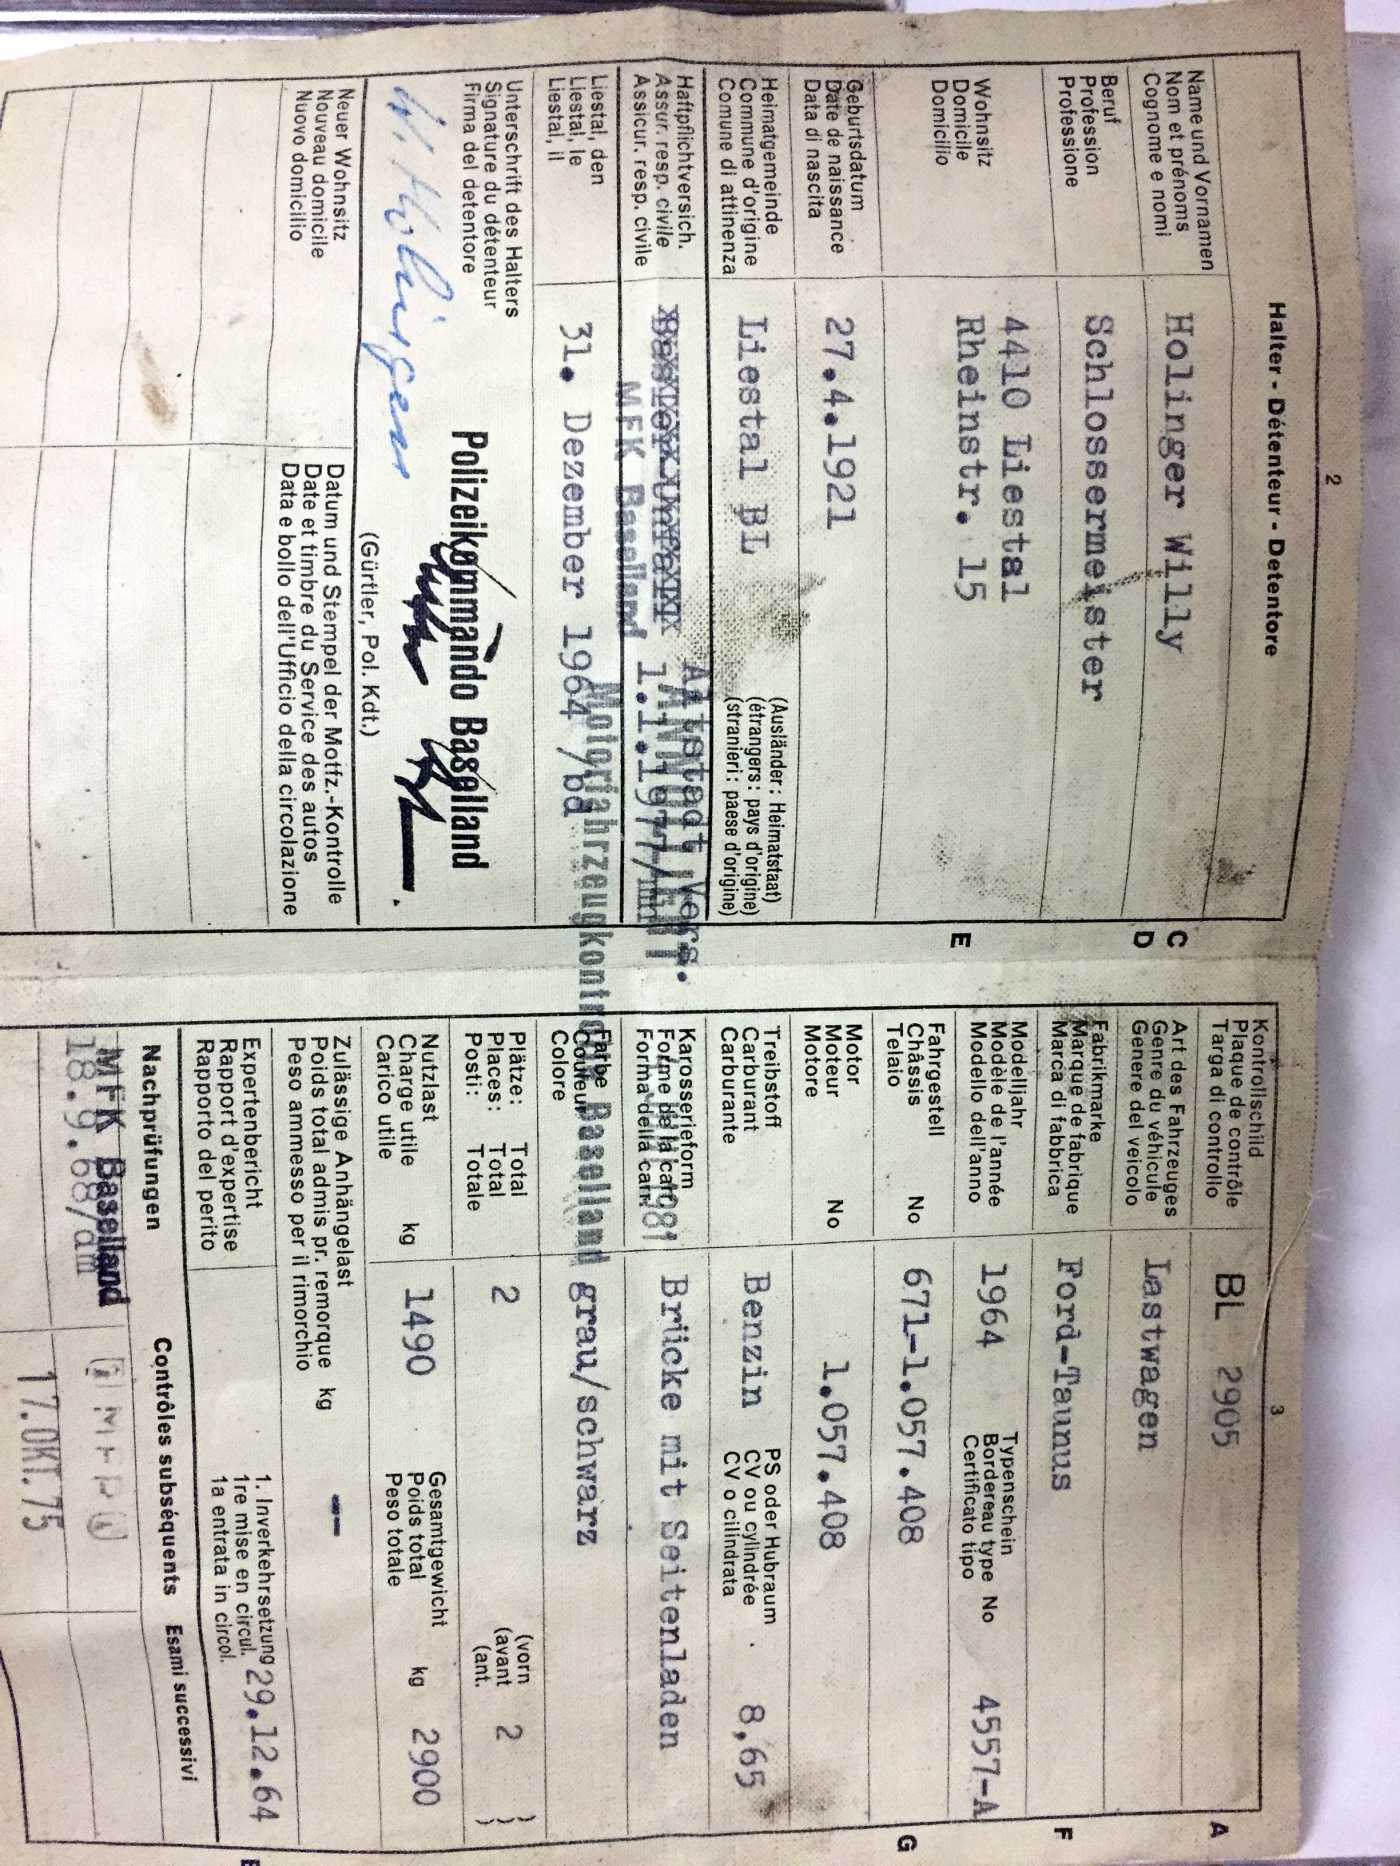 2
Halter - Détenteur - Detentore
Name und Vornamen
Nom et prénoms
Cognome e nomi
Holinger Willy
C
D
Beruf
Profession
Professione
Schlossermeister
Wohnsitz
Domicile
Domicilio
4410 Liestal
Rheinstr. 15
E
Geburtsdatum
Date de naissance
Data di nascita
27.4.1921
Heimatgemeinde
Commune d'origine
Comune di attinenza
Liestal BL
(Ausländer: Heimatstaat)
(étrangers: pays d'origine)
(stranieri: paese d'origine)
Haftpflichtversich.
Assur. resp. civile
Assicur. resp. civile
Altstadt Vers.
1.1.1977/mn
MFK Baselland
ANNULLIERT
Motorfahrzeugkontrolle Baselland
1981
Liestal, den
Liestal, le
Liestal, il
31. Dezember 1964 /ba
Unterschrift des Halters
Signature du détenteur
Firma del detentore
W. Holinger
Polizeikommando Baselland
(Gürtler, Pol. Kdt.)
Neuer Wohnsitz
Nouveau domicile
Nuovo domicilio
Datum und Stempel der Motfz.-Kontrolle
Date et timbre du Service des autos
Data e bollo dell'Ufficio della circolazione
3
Kontrollschild
Plaque de contrôle
Targa di controllo
BL 2905
A
Art des Fahrzeuges
Genre du véhicule
Genere del veicolo
Lastwagen
Fabrikmarke
Marque de fabrique
Marca di fabbrica
Ford-Taunus
F
Modelljahr
Modèle de l'année
Modello dell'anno
1964
Typenschein
Bordereau type No
Certificato tipo
4557-A
Fahrgestell
Châssis No
Telaio
671-1.057.408
G
Motor
Moteur No
Motore
1.057.408
Treibstoff
Carburant
Carburante
Benzin
PS oder Hubraum
CV ou cylindrée
CV o cilindrata
8,65
Karosserieform
Forme de la carr.
Forma della carr.
Brücke mit Seitenladen
Farbe
Couleur
Colore
grau/schwarz
Plätze: Total
Places: Total
Posti: Totale
2
(vorn
(avant
(ant.
2
)
)
Nutzlast
Charge utile kg
Carico utile
1490
Gesamtgewicht
Poids total kg
Peso totale
2900
Zulässige Anhängelast
Poids total admis pr. remorque kg
Peso ammesso per il rimorchio
--
Expertenbericht
Rapport d'expertise
Rapporto del perito
1. Inverkehrsetzung
1re mise en circul.
1a entrata in circol.
29.12.64
Nachprüfungen Contrôles subséquents Esami successivi
MFK Baselland
18.9.68/dm
17.OKT.75